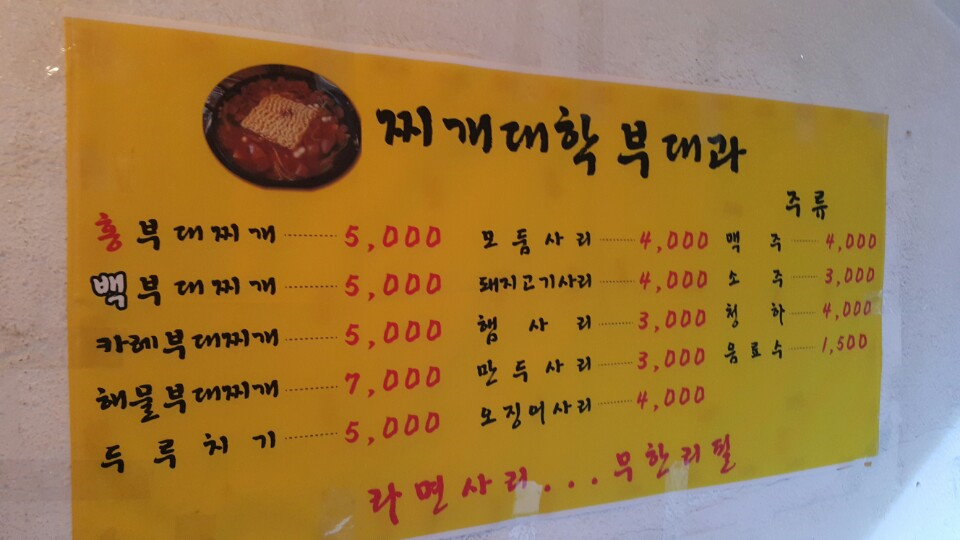 찌개대학 부대과
홍부대찌개 5,000
백부대찌개 5,000
카레부대찌개 5,000
해물부대찌개 7,000
두루치기 5,000
모둠사리 4,000
돼지고기사리 4,000
햄사리 3,000
만두사리 3,000
오징어사리 4,000
주류
맥주 4,000
소주 3,000
청하 4,000
음료수 1,500
라면사리...무한리필